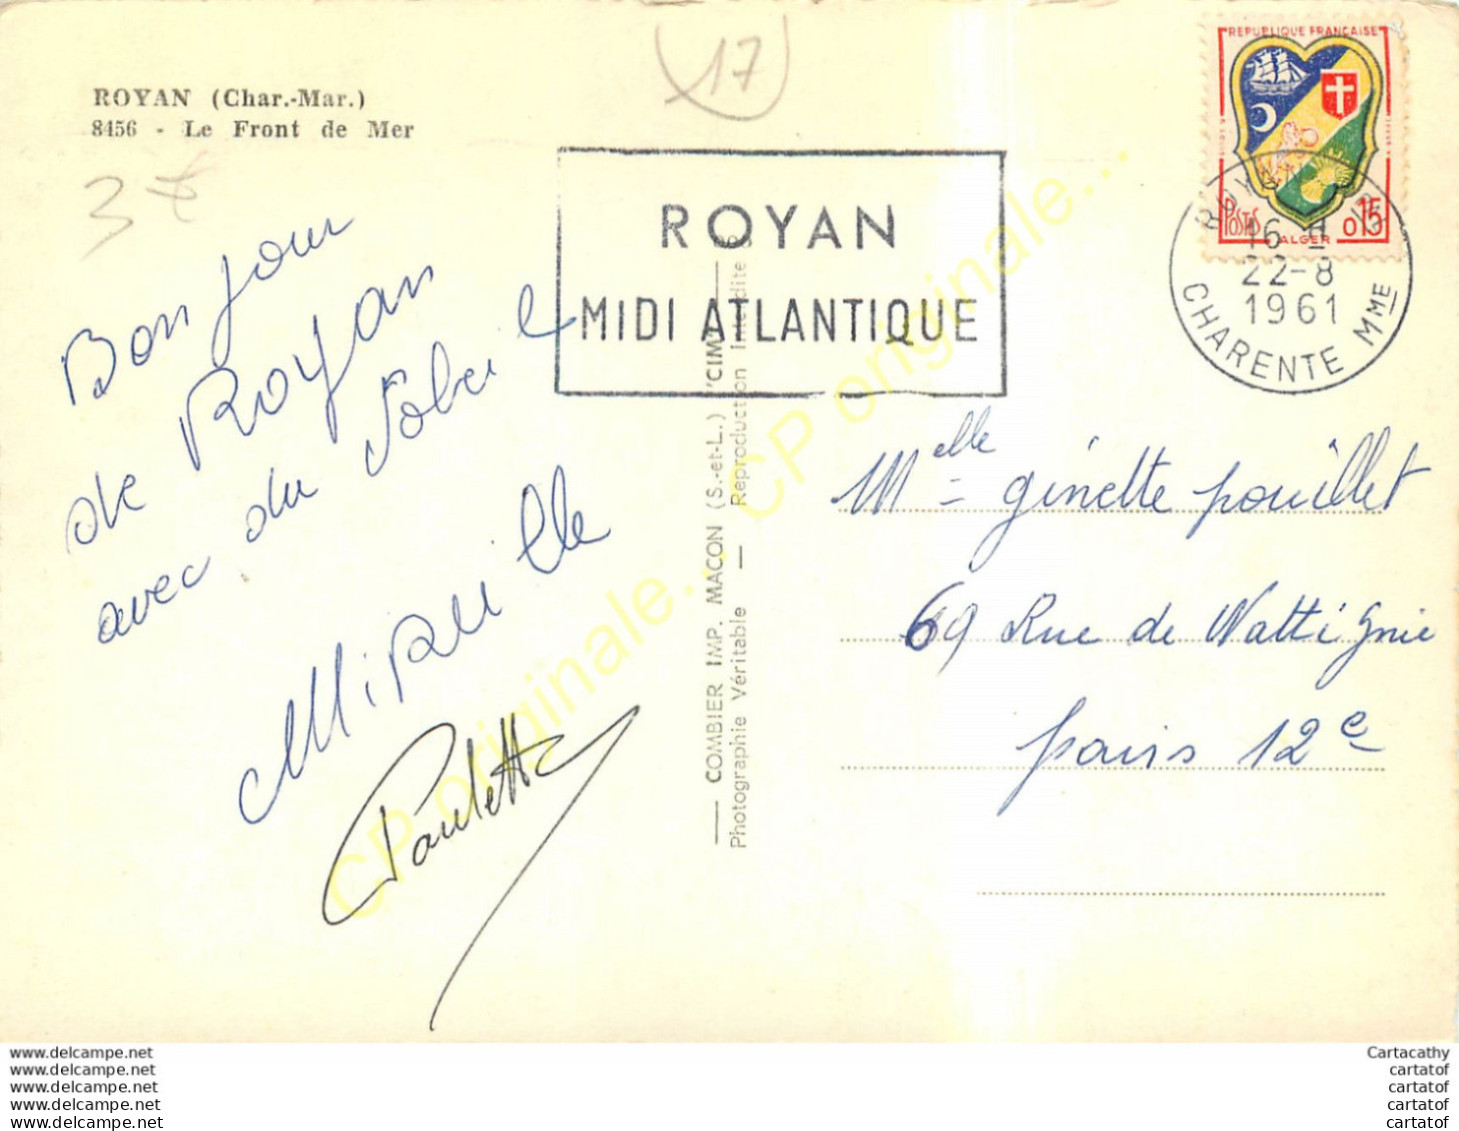 ROYAN (Char.-Mar.)
8456 - Le Front de Mer
17
3
REPUBLIQUE FRANÇAISE
POSTES
0,15
ALGER
ROYAN
MIDI ATLANTIQUE
16-H
22-8
1961
CHARENTE MME
Bonjour
de Royan
avec du soleil
Mireille
Paulette
COMBIER IMP. MACON (S.-et-L.) "CIM"
Photographie Véritable — Reproduction Interdite
Melle ginette pouillet
69 Rue de Wattignie
paris 12e
CP originale... CP originale... CP originale...
www.delcampe.net
www.delcampe.net
www.delcampe.net
www.delcampe.net
www.delcampe.net
Cartacathy
cartatof
cartatof
cartatof
cartatof